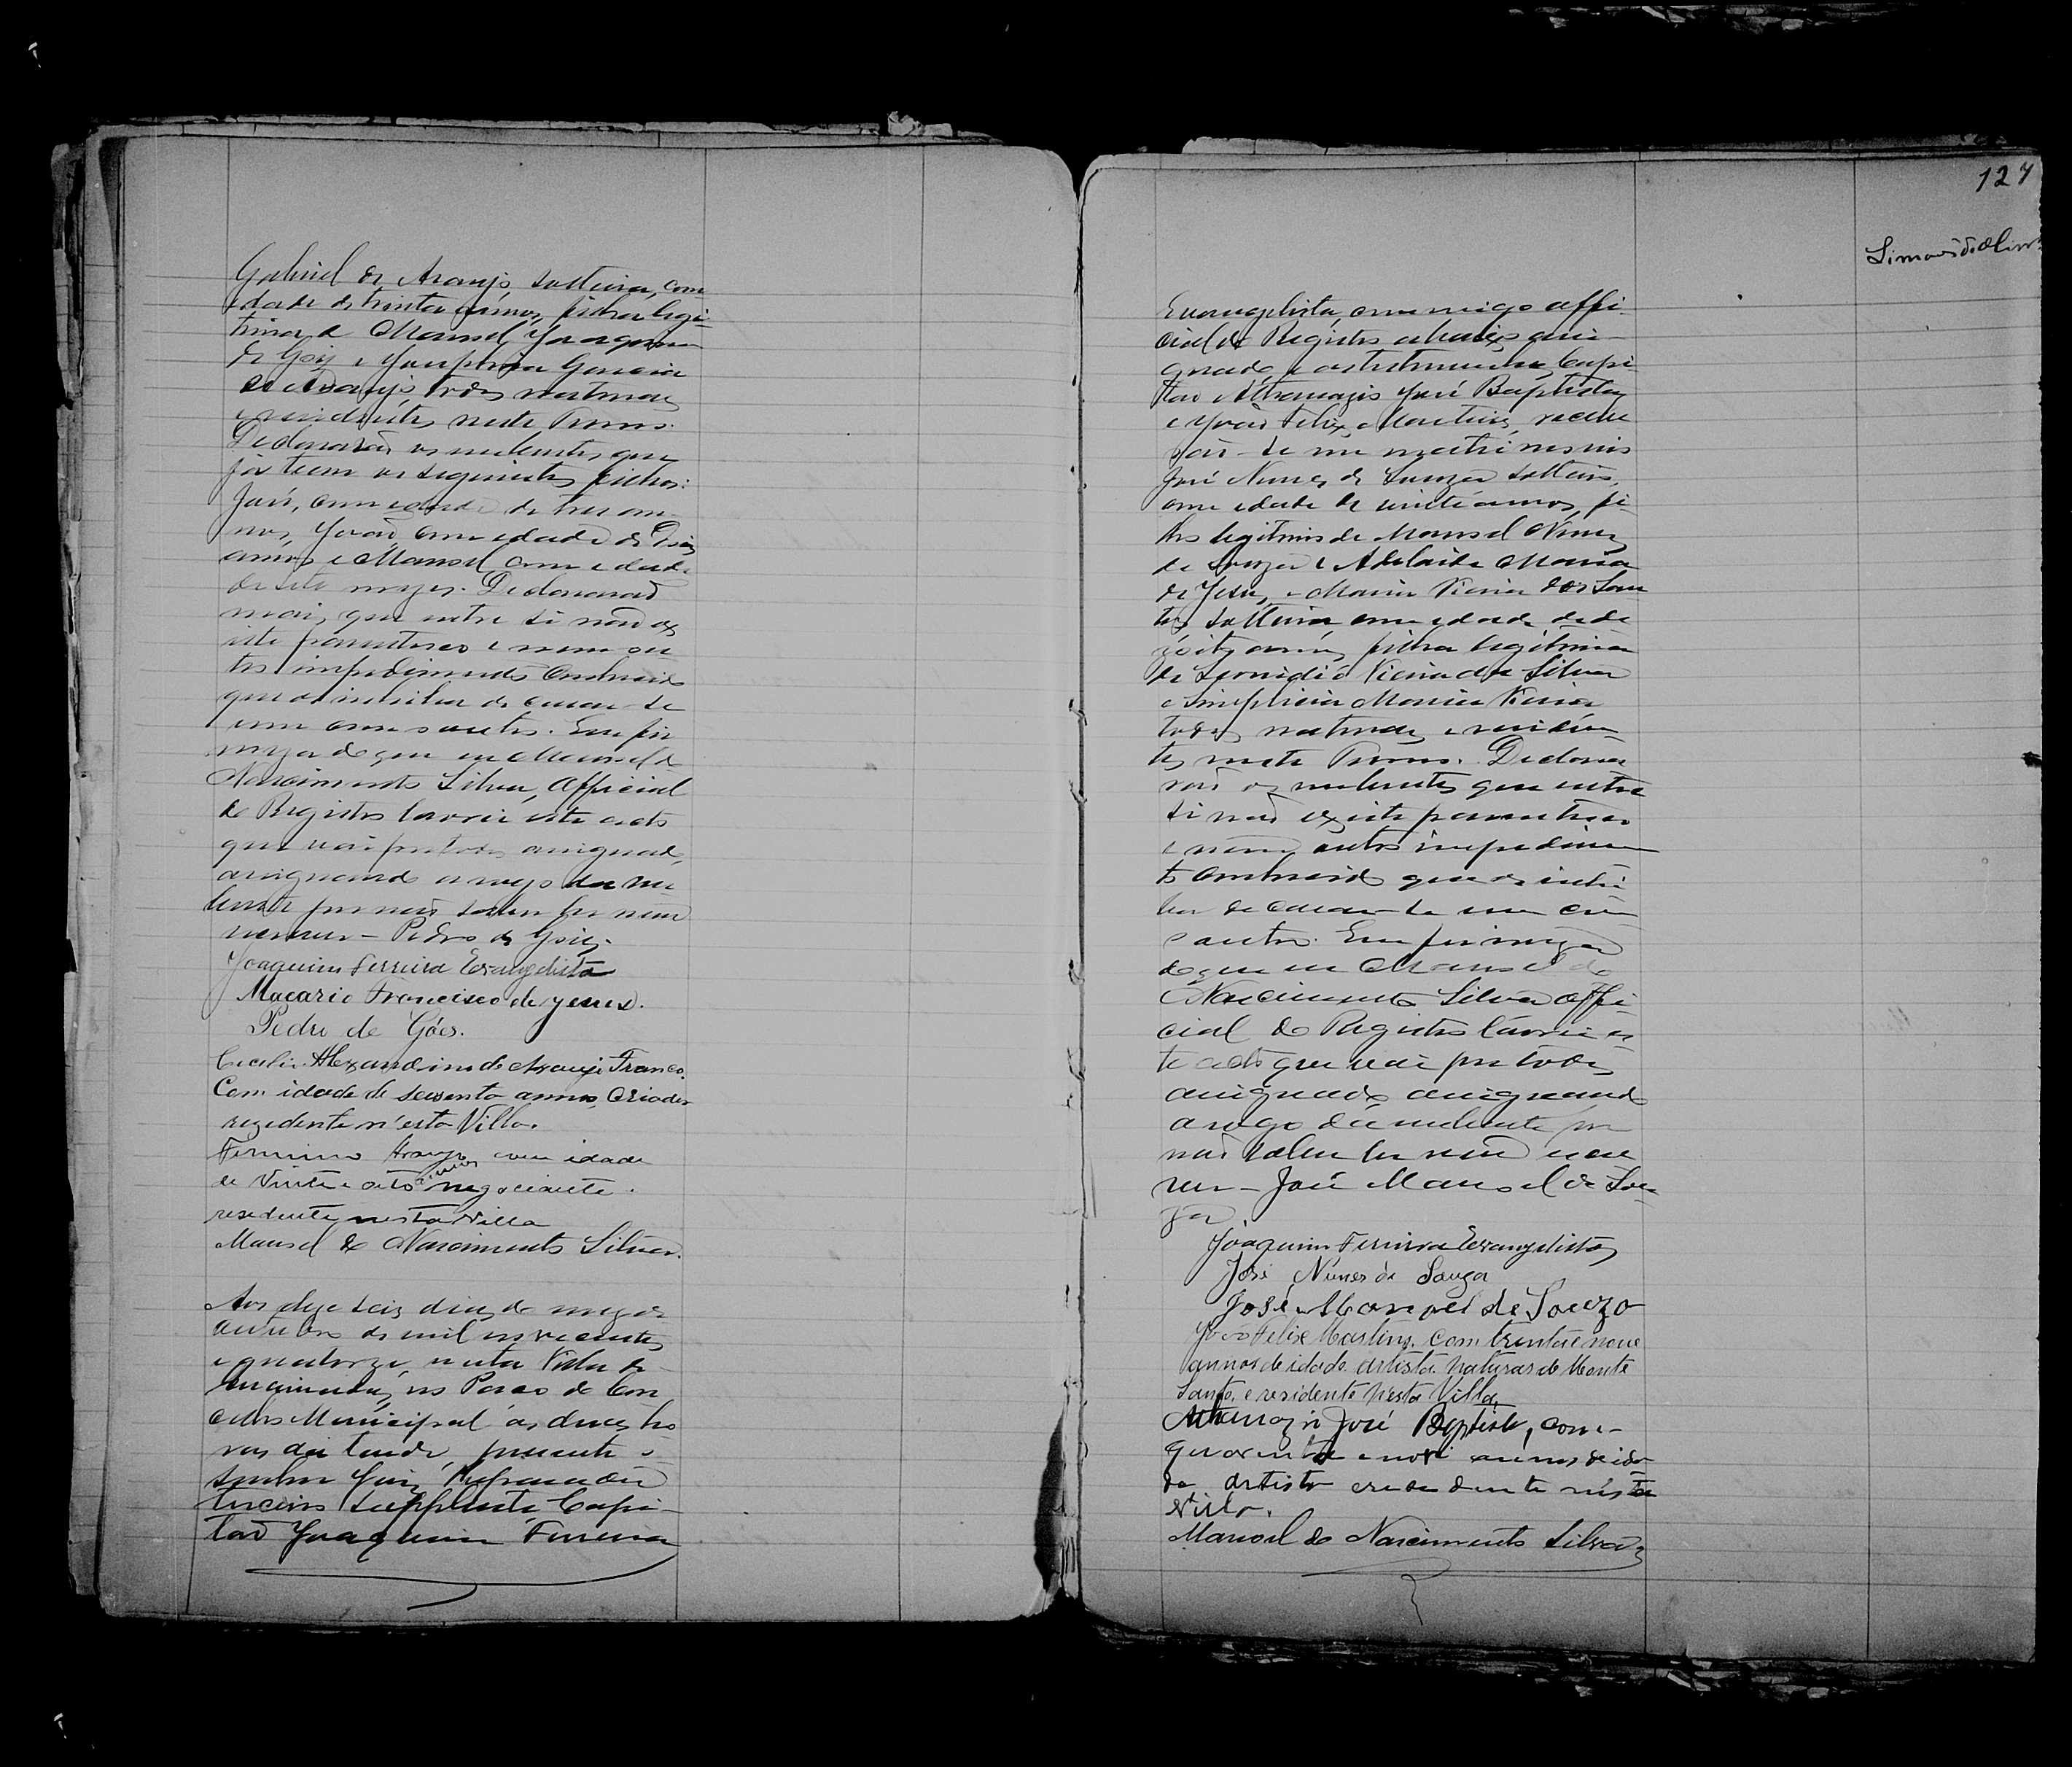 Gabriel de Araujo, solteira, com
edade de trinta annos, filha legi-
tima de Manoel Joaquim
de Goes e Josepha Garcia
de Araujo, todos naturaes
e residentes neste Termo.
Declararão os nubentes que
já teem os seguintes filhos:
José, com edade de tres an-
nos, João, com edade de Dois
annos e Manoel com edade
de oito mezes. Declararão
mais, que entre si não ex
iste parentesco e nem ou
tro impedimento
que os inhiba de casar-se
um com o outro. Em fir
meza do que eu Manoel do
Nascimento Silva, Official
do Registro lavrei este acto
que vai por todos assignado,
assignando a rogo da nu
bente por não saber ler nem
escrever - Pedro de Goes.
Joaquim Ferreira Evangelista
Macario Francisco de Jesus.
Pedro de Góes.
Alexandrino de Araujo Franco.
Com idade de sessenta annos, Criador
rezedente n'esta Villa.
Firmino Araujo com idade
de Vinte e oito annos negociante.
residente nesta Villa
Manoel do Nascimento Silva.
Aos deze seis dias do mez de
outubro de mil novecentos
e quatorze, nesta Villa de
no Paço do Con
celho Municipal ás duas ho
ras da tarde, presente o
senhor Juiz Preparador
terceiro Supplente Capi-
tão Joaquim Ferreira
127
Evangelista, commigo offi-
cial do Registro abaixo assi-
gnado, e as testemunhas Capi
tão Athanazio José Baptista
e João Felix Martins, recebe
rão-se em matrimonio
José Nunes de Souza solteiro,
com edade de vinte annos, fi
lho legitimo de Manoel Nunes
de Souza e Adelaide Maria
de Jesus, e Maria Vieira dos San
tos solteira com edade de de
zoito annos, filha legitima
de Leonidio Vieira da Silva
e Simplicia Maria Vieira
todos naturaes e residen-
tes neste Termo. Declara
rão os nubentes que entre
si não existe parentesco
e nem outro impedimen
to que os inhi
ba de casar-se um com
o outro. Em firmeza
do que eu Manoel do
Nascimento Silva Offi-
cial do Registro lavrei es
te acto que vai por todos
assignado, assignando
a rogo da nubente por
não saber ler nem escre
ver - José Manoel de Sou
za
Joaquim Ferreira Evangelista
José Nunes de Souza
José Manoel de Souza
João Felix Martins, com trinta e nove
annos de idade, artista. naturas de Monte
Santo e residente nesta Villa,
Athanazio José Baptista, com-
quarenta e nove annos de ida
de artista e residente nesta
Villa.
Manoel do Nascimento Silva